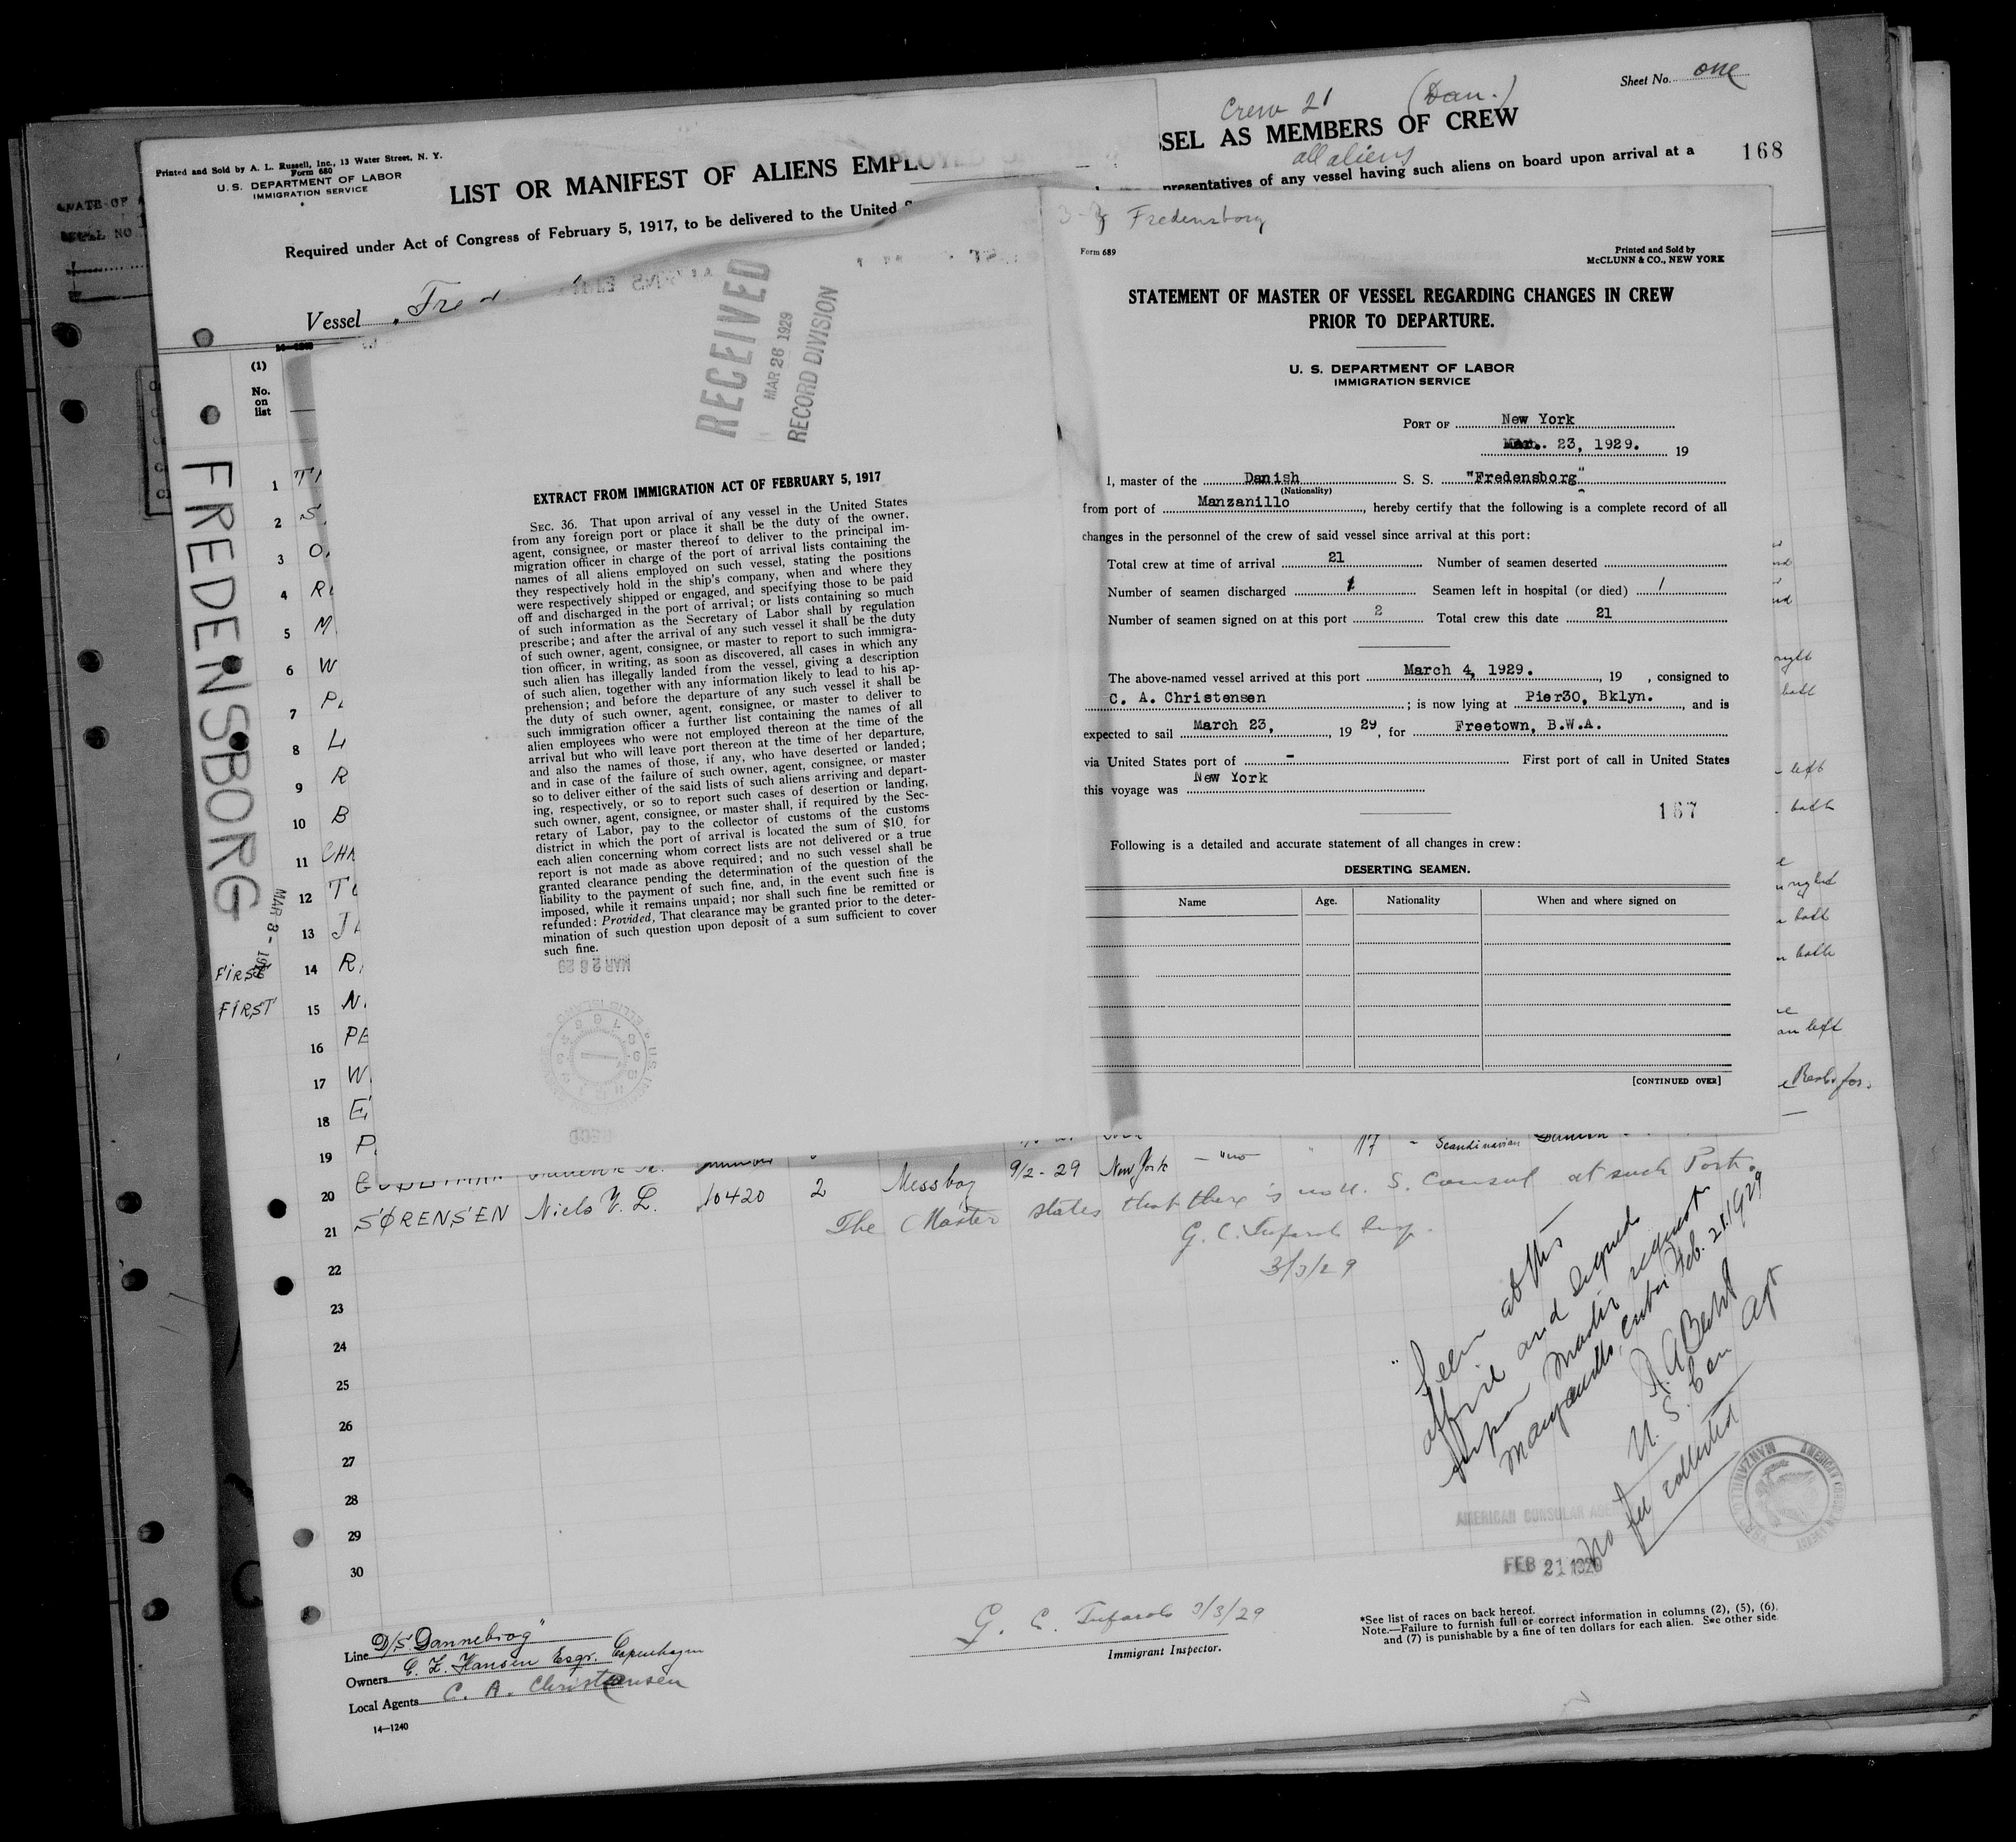 Sheet No. one
Crew 21 (Dan.)
SSEL AS MEMBERS OF CREW
all aliens
presentatives of any vessel having such aliens on board upon arrival at a
168
Printed and Sold by A. L. Russell, Inc., 13 Water Street, N. Y.
Form 680
U. S. DEPARTMENT OF LABOR
IMMIGRATION SERVICE
LIST OR MANIFEST OF ALIENS EMPLOYED
Required under Act of Congress of February 5, 1917, to be delivered to the United S
Vessel Fred
14—1240
(1)
No.
on
list
FREDENSBORG
MAR 8 - 1929
1
2 S.
3 O
4 R
5 M
6 W
7 P
8
9 R
10 B
11 CHR
12 T
13 J
FIRST 14 R
FIRST 15 N.
16 PE
17 W.
18 E
19 P.
RECEIVED
MAR 26 1929
RECORD DIVISION
EXTRACT FROM IMMIGRATION ACT OF FEBRUARY 5, 1917
SEC. 36. That upon arrival of any vessel in the United States
from any foreign port or place it shall be the duty of the owner,
agent, consignee, or master thereof to deliver to the principal im-
migration officer in charge of the port of arrival lists containing the
names of all aliens employed on such vessel, stating the positions
they respectively hold in the ship's company, when and where they
were respectively shipped or engaged, and specifying those to be paid
off and discharged in the port of arrival; or lists containing so much
of such information as the Secretary of Labor shall by regulation
prescribe; and after the arrival of any such vessel it shall be the duty
of such owner, agent, consignee, or master to report to such immigra-
tion officer, in writing, as soon as discovered, all cases in which any
such alien has illegally landed from the vessel, giving a description
of such alien, together with any information likely to lead to his ap-
prehension; and before the departure of any such vessel it shall be
the duty of such owner, agent, consignee, or master to deliver to
such immigration officer a further list containing the names of all
alien employees who were not employed thereon at the time of the
arrival but who will leave port thereon at the time of her departure,
and also the names of those, if any, who have deserted or landed;
and in case of the failure of such owner, agent, consignee, or master
so to deliver either of the said lists of such aliens arriving and depart-
ing, respectively, or so to report such cases of desertion or landing,
such owner, agent, consignee, or master shall, if required by the Sec-
retary of Labor, pay to the collector of customs of the customs
district in which the port of arrival is located the sum of $10. for
each alien concerning whom correct lists are not delivered or a true
report is not made as above required; and no such vessel shall be
granted clearance pending the determination of the question of the
liability to the payment of such fine, and, in the event such fine is
imposed, while it remains unpaid; nor shall such fine be remitted or
refunded: Provided, That clearance may be granted prior to the deter-
mination of such question upon deposit of a sum sufficient to cover
such fine.
MAR 26 29
3-3 Fredensborg
Form 689
Printed and Sold by
McCLUNN & CO., NEW YORK
STATEMENT OF MASTER OF VESSEL REGARDING CHANGES IN CREW
PRIOR TO DEPARTURE.
U. S. DEPARTMENT OF LABOR
IMMIGRATION SERVICE
PORT OF New York
Mar. 23, 1929. 19
I, master of the Danish S. S. "Fredensborg"
(Nationality)
from port of Manzanillo, hereby certify that the following is a complete record of all
changes in the personnel of the crew of said vessel since arrival at this port:
Total crew at time of arrival 21 Number of seamen deserted
Number of seamen discharged 1 Seamen left in hospital (or died) 1
Number of seamen signed on at this port 2 Total crew this date 21
The above-named vessel arrived at this port March 4, 1929., 19 , consigned to
C. A. Christensen; is now lying at Pier30, Bklyn., and is
expected to sail March 23, 1929, for Freetown, B.W.A.
via United States port of - First port of call in United States
this voyage was New York
167
Following is a detailed and accurate statement of all changes in crew:
DESERTING SEAMEN.
Name Age. Nationality When and where signed on
[CONTINUED OVER]
left
17 - Scandinavian Danish
20
21 SØRENSEN Niels V. L. 10420 2 Messboy 9/2-29 New York - "no
The Master states that there is no U. S. Consul at such Port.
G. C. Tufarolo Insp.
3/3/29
22
23
24
25
26
27
28
29
30
"Seen at this
office and signed
upon Master request
Manzanillo, Cuba, Feb. 21, 1929
U. S. Con Agt
No fee collected
AMERICAN CONSULAR AGE
FEB 21 1929
Line D/S. Dannebrog"
Owners C. K. Hansen Esqr. Copenhagen
Local Agents C. A. Christensen
14—1240
G. C. Tufarolo 3/3/29
Immigrant Inspector.
*See list of races on back hereof.
Note.—Failure to furnish full or correct information in columns (2), (5), (6),
and (7) is punishable by a fine of ten dollars for each alien. See other side